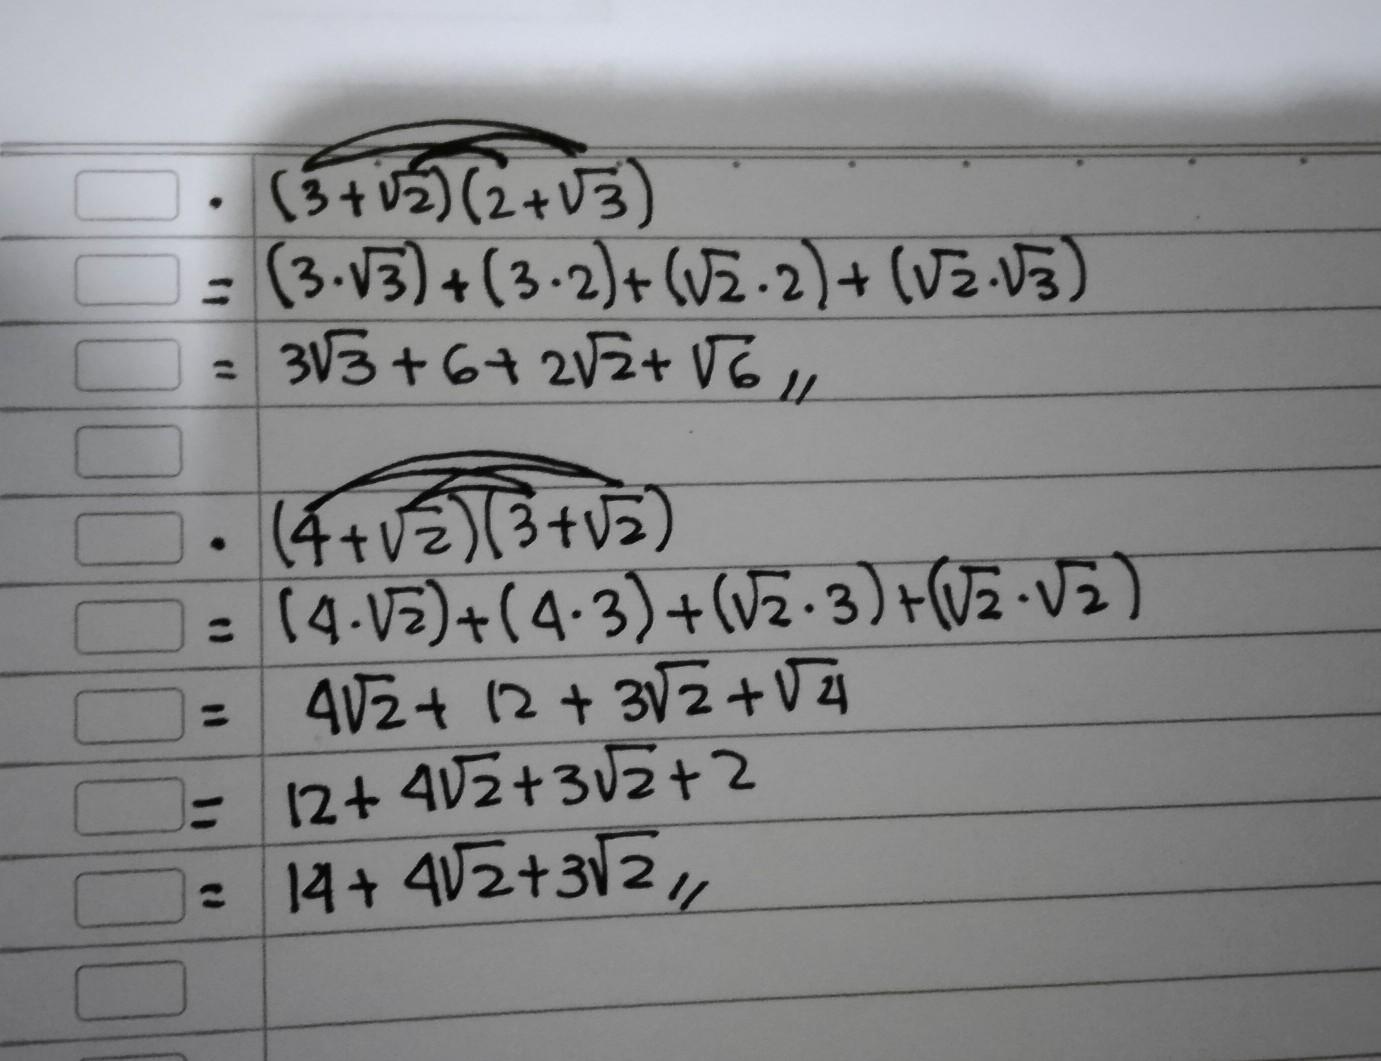 · (3+√2)(2+√3)
= (3·√3)+(3·2)+(√2·2)+(√2·√3)
= 3√3+6+2√2+√6 //
· (4+√2)(3+√2)
= (4·√2)+(4·3)+(√2·3)+(√2·√2)
= 4√2+12+3√2+√4
= 12+4√2+3√2+2
= 14+4√2+3√2 //